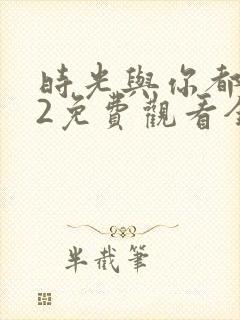 時光與你都
2免費觀看全
半截筆